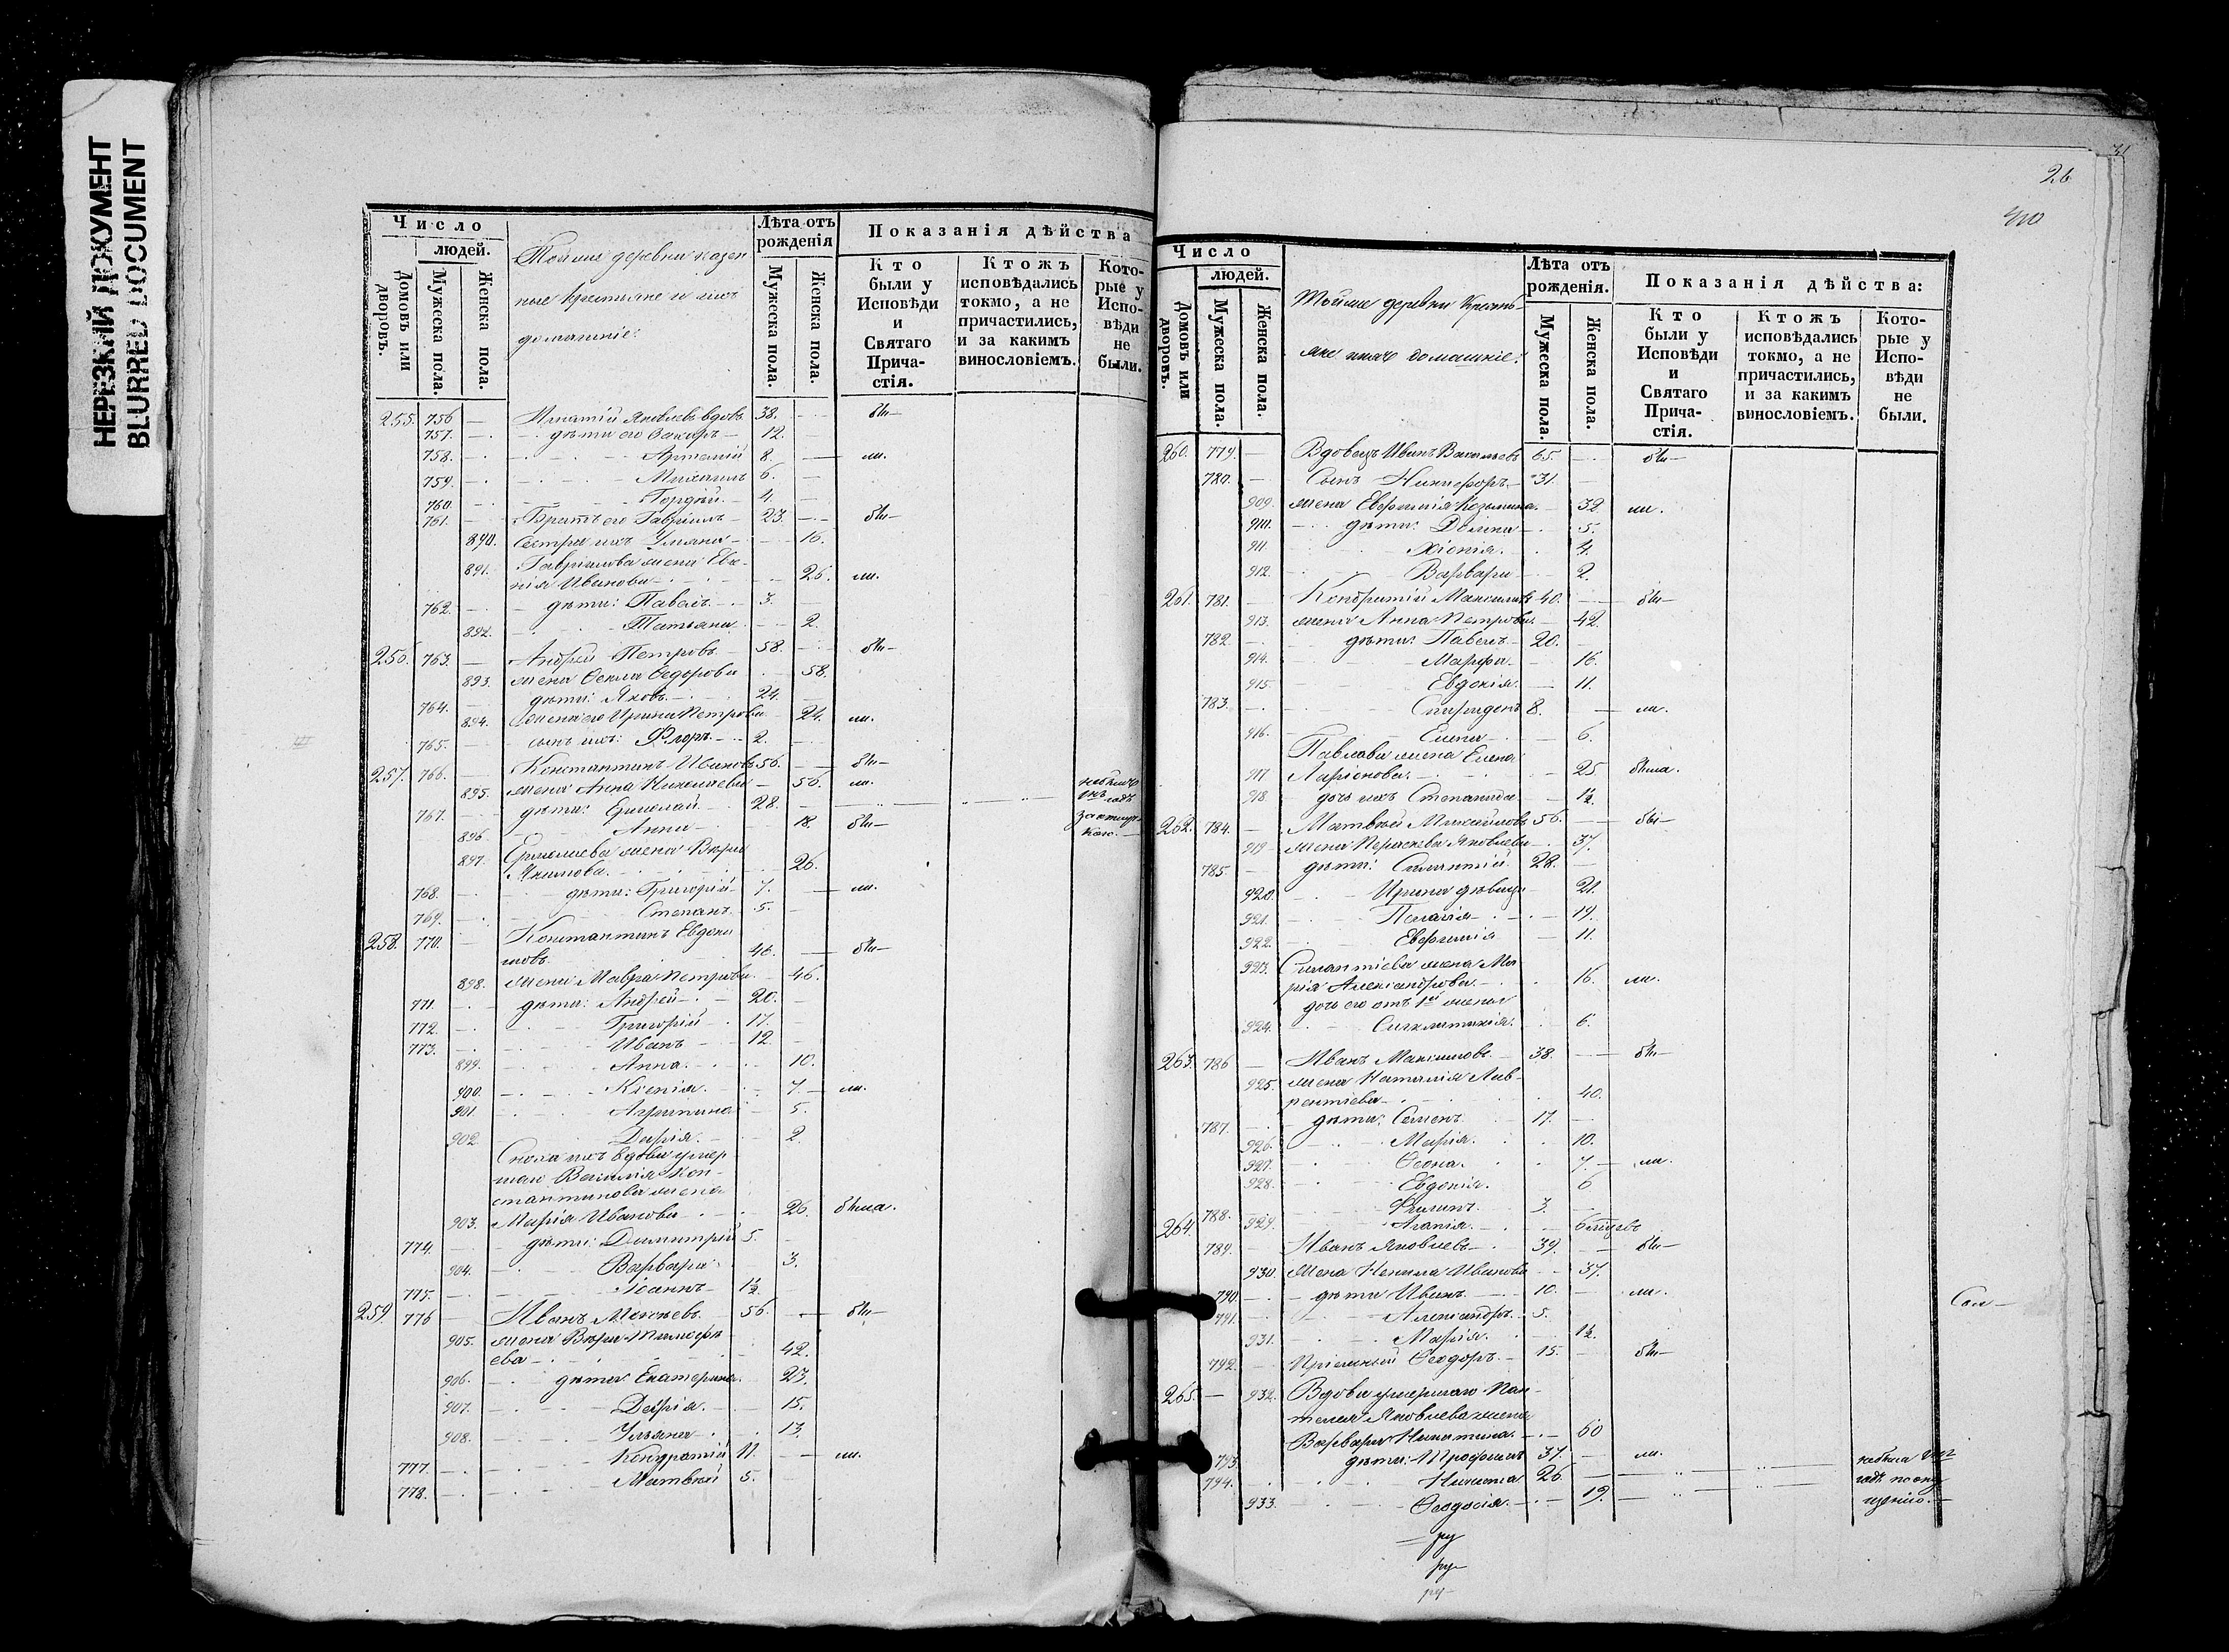 НЕРЕЗКИЙ ДОКУМЕНТ
BLURRED DOCUMENT
Число
людей.
Домовъ или дворовъ.
Мужеска пола.
Женска пола.
Тойже деревни казен
ные крестьяне и ихъ
домашніе:
Лѣта отъ рожденія
Мужеска пола.
Женска пола.
Показанія дѣйства
Кто были у Исповѣди и Святаго Прича- стія.
Ктожъ исповѣдались токмо, а не причастились, и за какимъ винословіемъ.
Кото- рые у Испо- вѣди не были.
255. 756 Игнатій Яковлевъ вдовъ 38. бы-
757. дѣти его Захаръ 12.
758. Артемій 8. ли.
759. Михаилъ 6.
760. Гордѣй 4.
761. Братъ его Гавріилъ 23. бы-
890. Сестра ихъ Ульяна 16.
891. Гавріилова жена Ев
нія Иванова 26. ли.
762. дѣти: Павелъ 3.
892. Татьяна 2.
256. 763. Андрей Петровъ 58. бы-
893. жена Ѳекла Ѳедорова 58.
764. дѣти: Яковъ 24.
894. жена его Ирина Петрова 24. ли.
765. сынъ ихъ: Флоръ 2.
257. 766. Константинъ Ивановъ 56. бы-
895. жена Анна Николаева 56. ли.
767. дѣти: Ермолай 28.
896 Анна 18. бы-
897. Ермолаева жена Вѣра
Якимова. 26.
768. дѣти: Григорій 7. ли.
769. Степанъ 5.
258. 770. Константинъ Евдоки
мовъ 46. бы-
898. жена Мавра Петрова 46.
771. дѣти: Андрей 20.
772. Григорій 17.
773. Иванъ 12
899. Анна 10.
900. Ксенія 7 ли.
901. Агрипина 5.
902. Дарія 2.
Сноха ихъ вдова умер
шаго Василія Кон-
стантинова жена
903. Марія Иванова 26. была.
774. дѣти: Димитрій 5.
904. Варвара 3.
775. Іоаннъ 1½
259. 776 Иванъ Моисѣевъ 56. бы-
905. жена Вѣра Тимофѣ
ева 42.
906. дѣти: Екатерина 23.
907. Дарія 15.
908. Ульяна 13.
777. Кондратій 11 ли.
778. Матвѣй 5.
26
31
Число
людей.
Домовъ или дворовъ.
Мужеска пола.
Женска пола.
Тойже деревни кресть-
яне ихъ домашніе:
Лѣта отъ рожденія.
Мужеска пола.
Женска пола.
Показанія дѣйства:
Кто были у Исповѣди и Святаго Прича- стія.
Ктожъ исповѣдались токмо, а не причастились, и за какимъ винословіемъ.
Кото- рые у Испо- вѣди не были.
260. 779. Вдовецъ Иванъ Васильевъ 65. бы-
780. Сынъ Никифоръ 31.
909. жена Евфимія Козьмина 32 ли.
910. дѣти: 5.
911 Хіонія. 4.
912. Варвара 2.
261. 781. Кондратій Максимовъ 40. бы-
913. жена Анна Петрова 42.
782. дѣти: Павелъ 20.
914. Марфа 16.
915. Евдокія 11.
783. Спиридонъ 8. ли.
916. Елена 6.
Павлова жена Елена
917 Ларіонова. 25 была.
918. дочь ихъ Степанида 1½
262. 784. Матвѣй Михайловъ 56. бы-
919 жена Параскева Яковлева 37.
785. дѣти: Силантій 28.
920. Ирина дѣвица 21.
921. Пелагія 19.
922. Евфимія 11.
923. Силантіева жена Ма
рія Александрова 16. ли.
дочь его отъ 1й жены
924. Синклитикія. 6.
263. 786 Иванъ Максимовъ 38. бы-
925. жена Наталія Лав-
рентіева 40.
787. дѣти: Семенъ 17.
926. Марія 10.
927. Ѳеона 7. ли.
928. Евдокія 6
788. Филипъ 3.
929. Агапія 6 мѣсяцевъ
264. 789. Иванъ Яковлевъ 39. бы-
930. жена Ненила Иванова 37.
790 дѣти Иванъ 10. ли.
791. Александръ 5.
931. Марія 1½
792. Пріемный Ѳеодоръ 15. бы-
265. 932. Вдова умершаго Пан-
телея Яковлева жена
Варвара Никитина 60
793 дѣти: Трофимъ 37. ли.
794. Никита 26
933. Ѳеодосія 19.